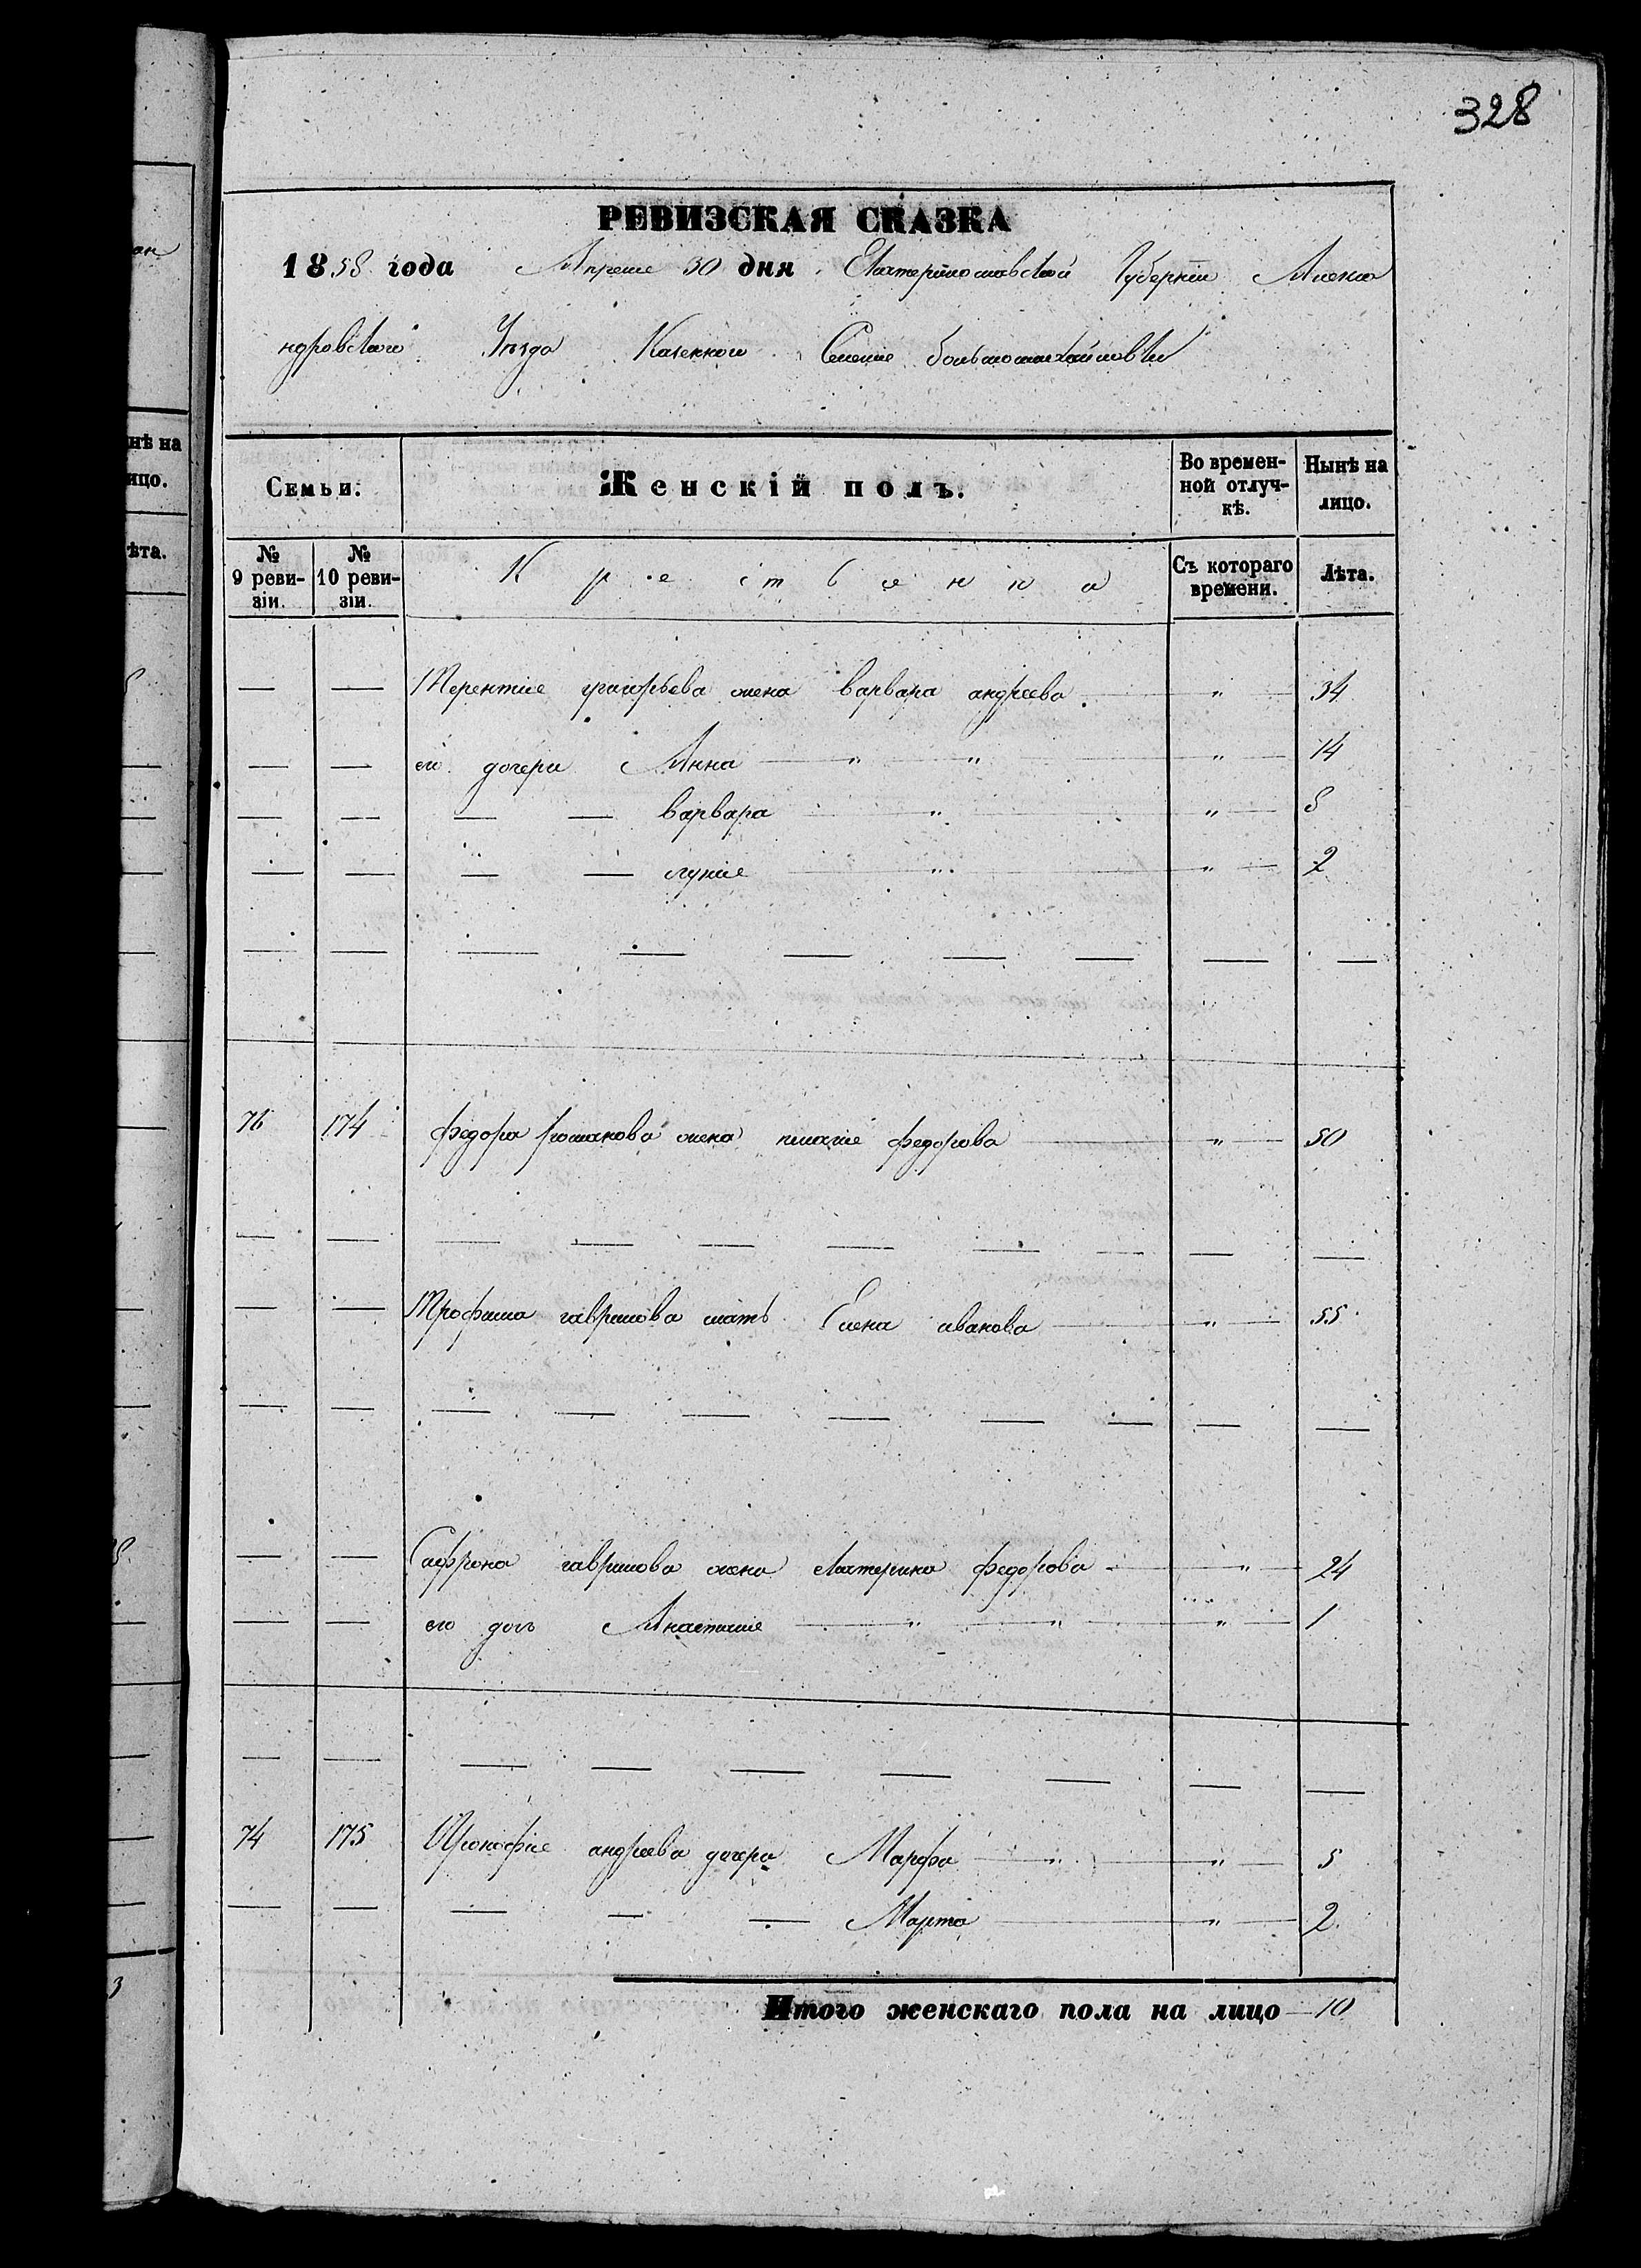 328
РЕВИЗСКАЯ СКАЗКА
1858 года Апреле 30 дня. Екатеринославской Губернии Алекса
ндровского Уезда Казенного Селение большомихайловки
Семьи: Женскій полъ. Во времен-ной отлуч-кѣ. Нынѣ на лицо.
№ 9 реви-зіи. № 10 реви-зіи. Крестьенка Съ котораго времени. Лѣта.
— — Терентие григорьева жена варвара андреева — " — 34
— — его дочери Анна — " — " — " — 14
— — — — варвара — " — " — 8
— — — — лукие — " — " — 2
76 174 федора романова жена пелагие федорова — " — 50
— — Трофима гаврилова мать Елена иванова — " — 55
— — Сафрона гаврилова жена екатерина федорова — " — 24
— — его дочь Анастасие — " — " — " — 1
74 175 Прокофие андреева дочери Марфа — " — " — 5
— — — — — Марта — " — 2
Итого женскаго пола на лицо — 10
нѣ на
ицо.
ѣта.
3